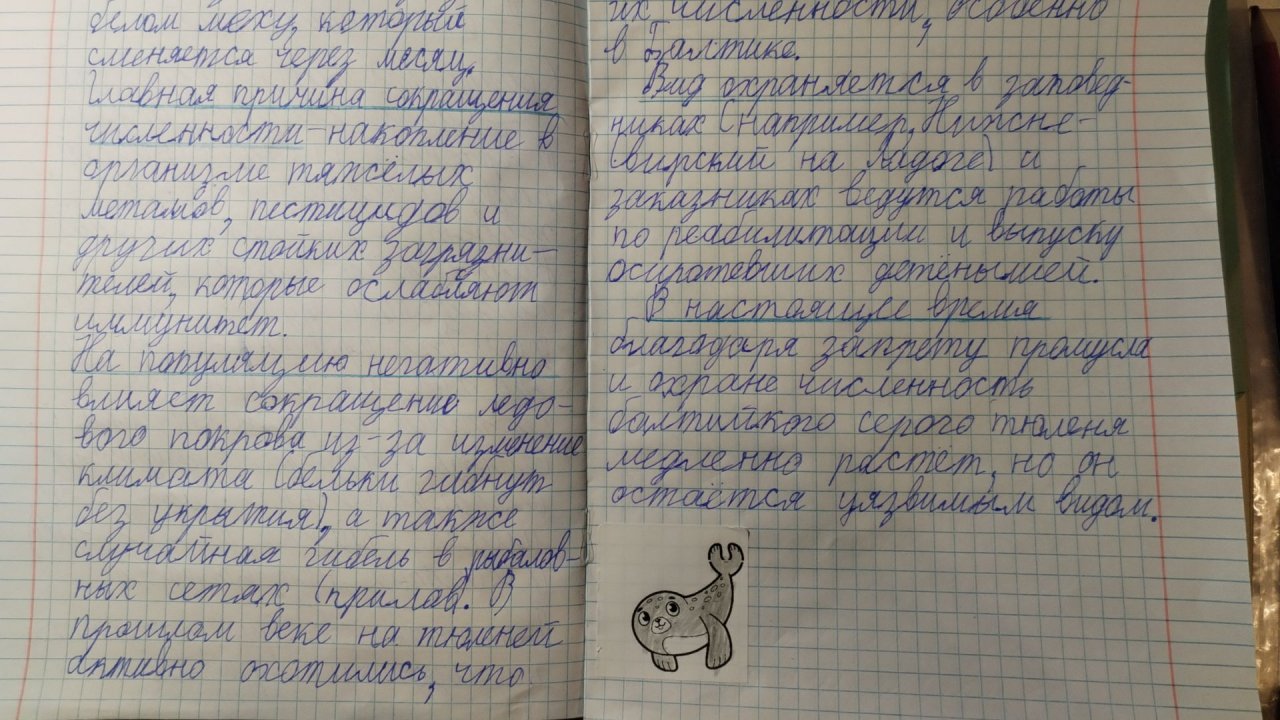 белом меху, который
сменяется через месяц.
Главная причина сокращения
численности-накопление в
организме тяжёлых
металлов, пестицидов и
других стойких загрязни-
телей, которые ослабляют
иммунитет.
На популяцию негативно
влияет сокращению ледо-
вого покрова из-за изменение
климата (бельки гибнут
без укрытия), а также
случайная гибель в рыболов-
ных сетях (прилов. В
прошлом веке на тюленей
активно охотились, что
их численности, особенно
в Балтике.
Вид охраняется в заповед-
никах (например, Нижне-
Свирский на Ладоге) и
заказниках ведутся работы
по реабилитации и выпуску
осиротевших детёнышей.
В настоящее время
благодаря запрету промысла
и охране численность
балтийкого серого тюленя
медленно растёт, но он
остаётся уязвимым видом.